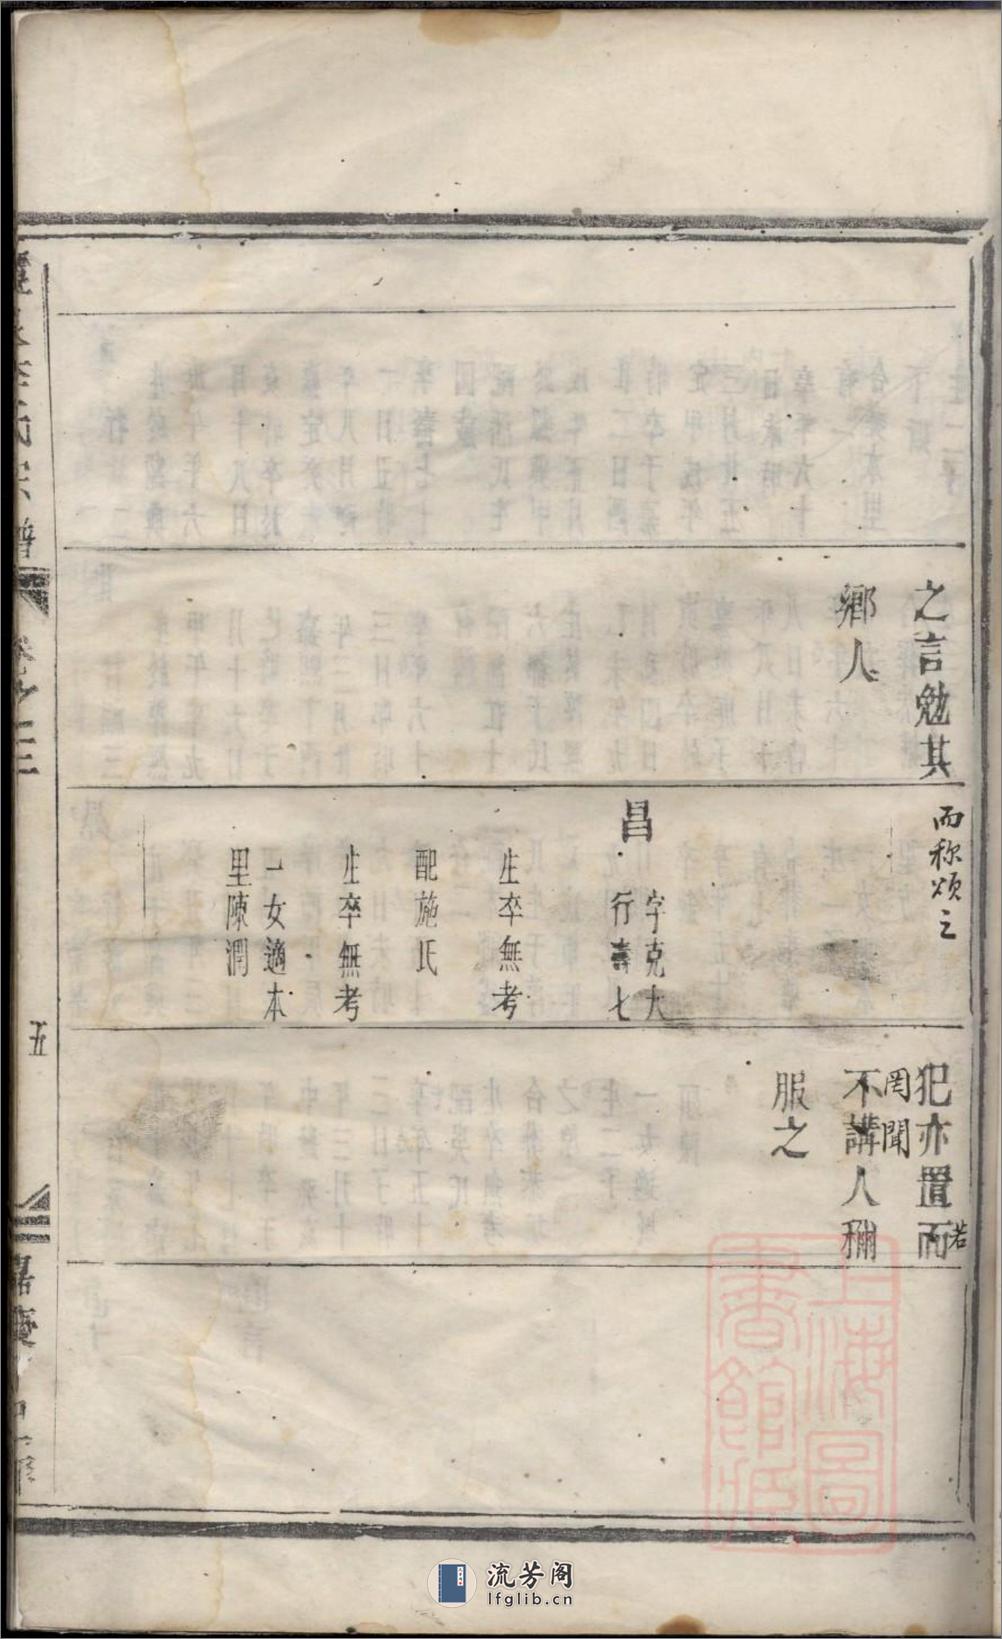 之言勉其
鄉人
而称颂之
昌
字克大
行壽七
生卒無考
配施氏
生卒無考
一女適本
里陳潤
犯亦置而若
罔聞
不講人稱
服之
宗譜
卷之三
五
嘉慶
上海圖
書館藏
流芳阁
lfglib.cn